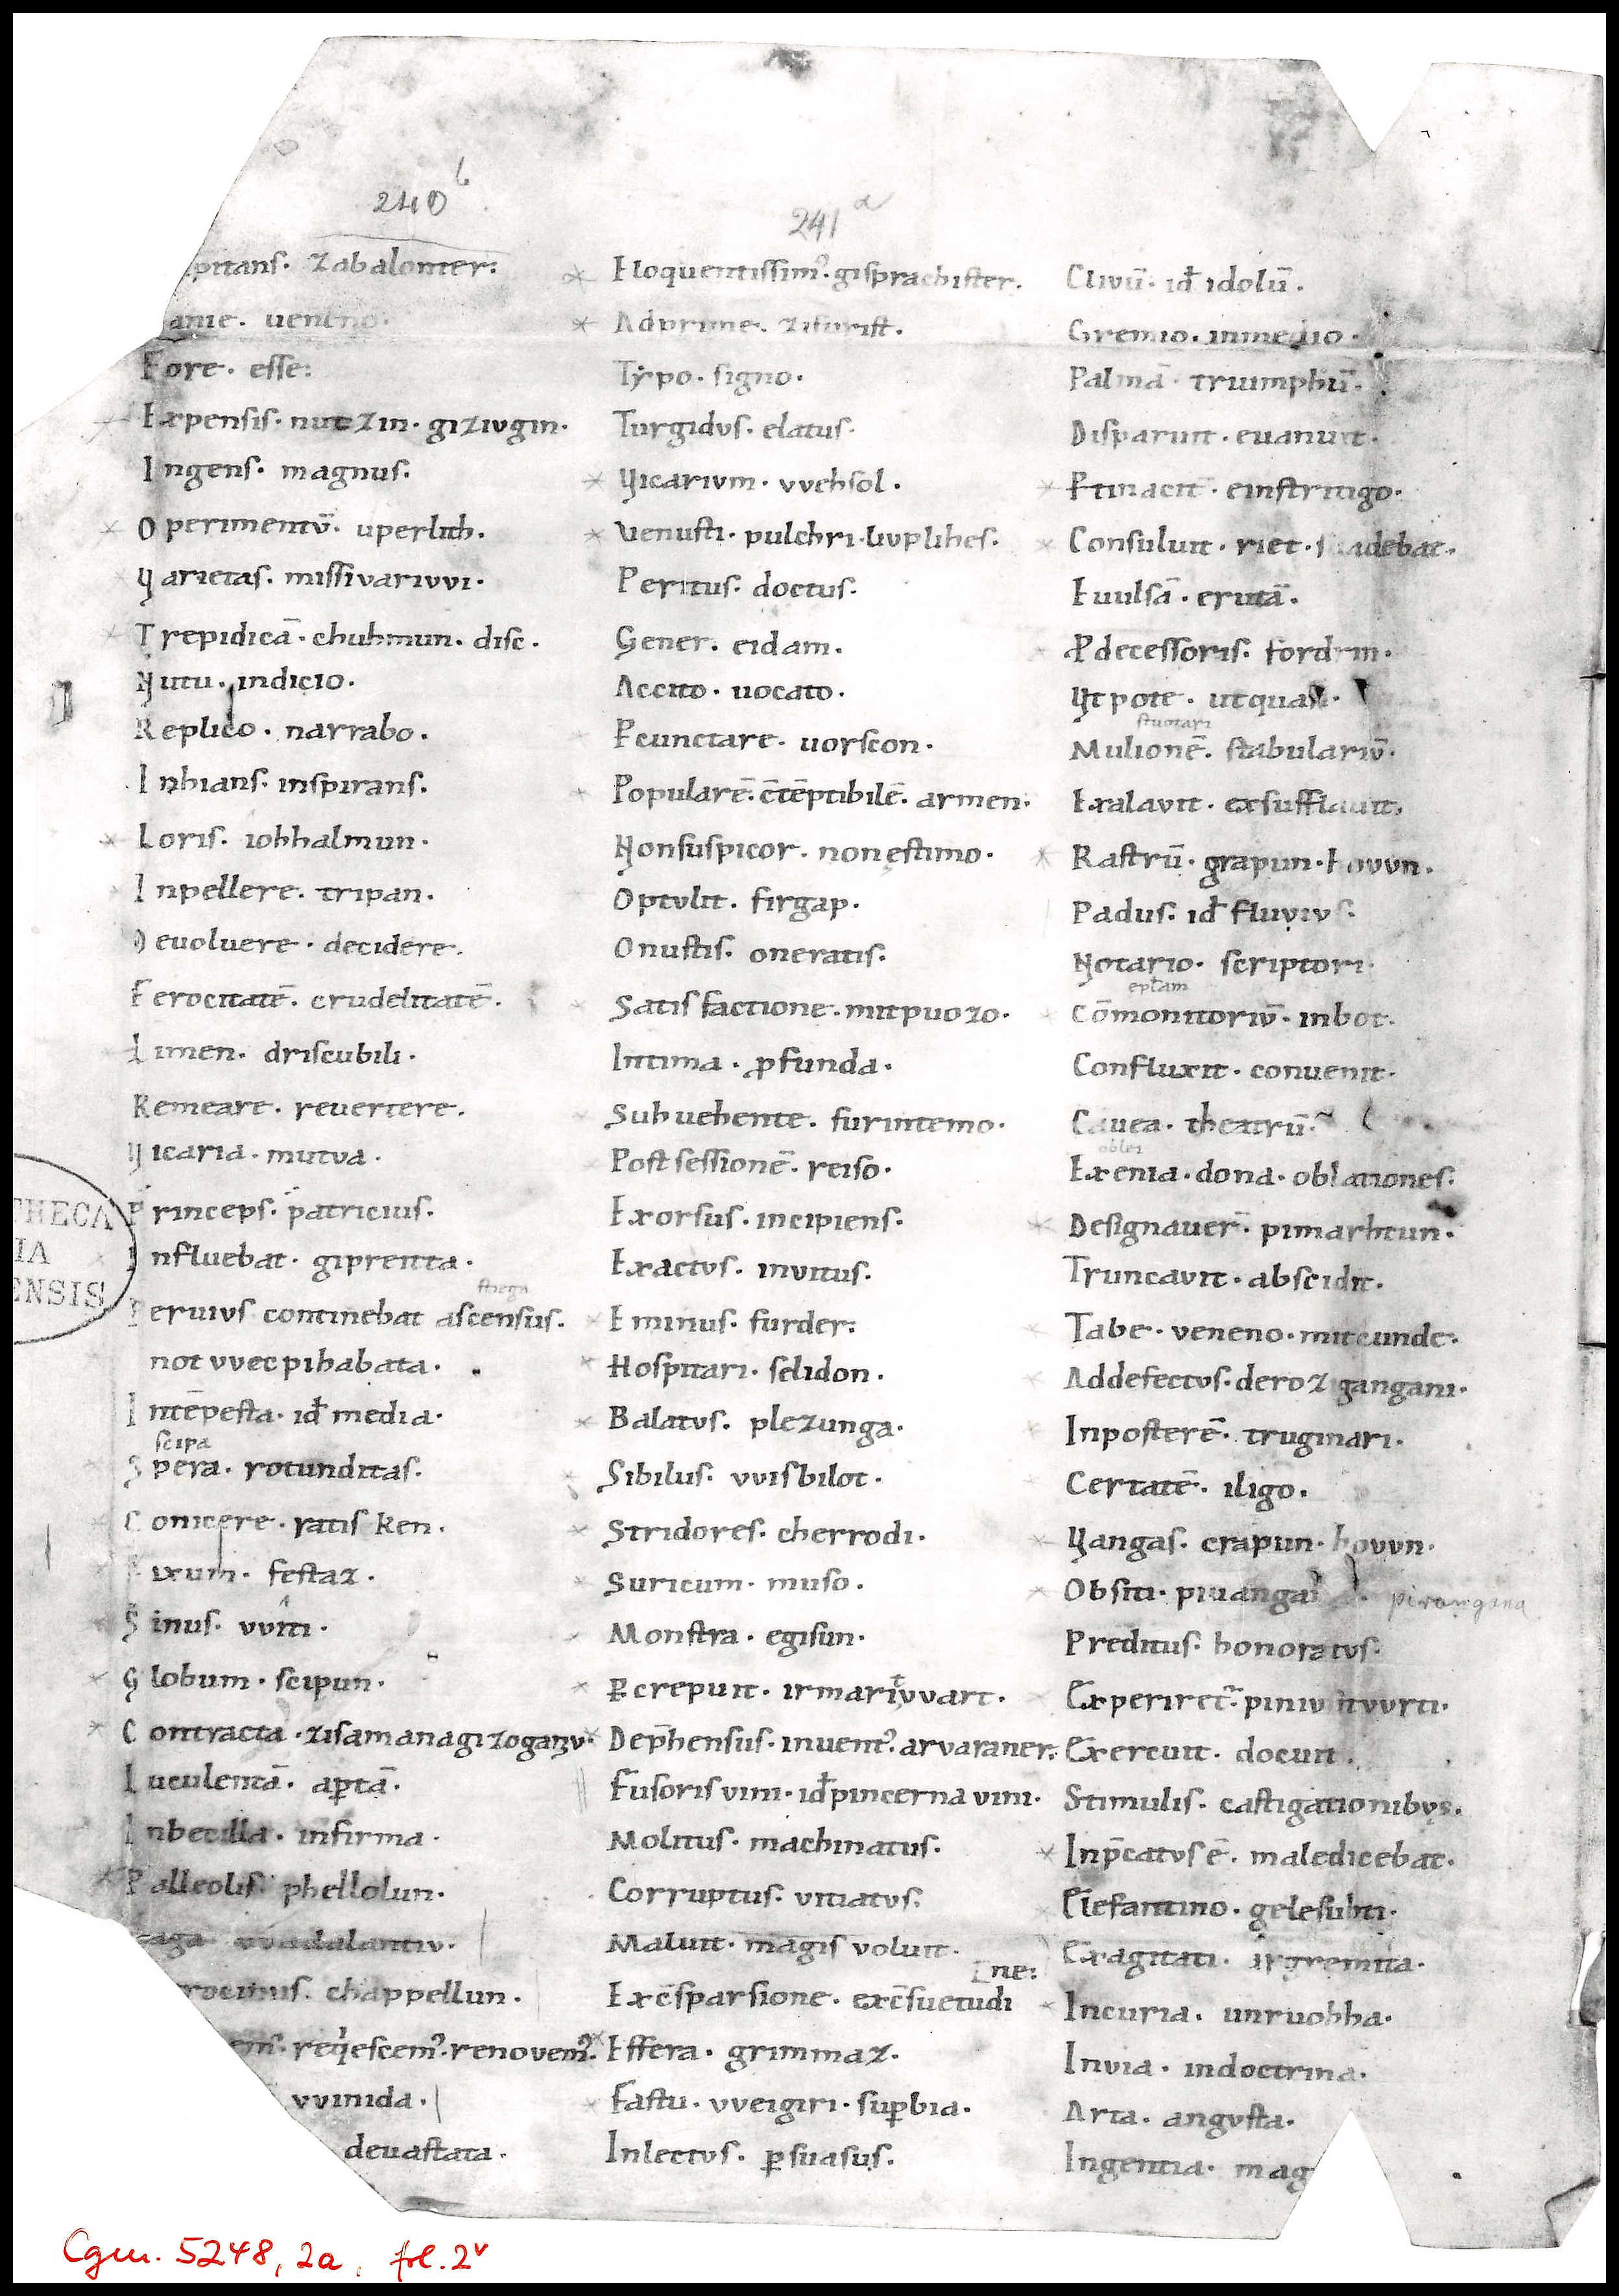 240 b
pitans. zabalonter:
Fore. esse:
Expensis. nutzin. giziugin.
Ingens. magnus.
Operimentū. uperlith.
Varietas. missivarivvi.
Trepidicā. chuhmun. disc.
Nutu. indicio.
Replico. narrabo.
Inhians. inspirans.
Loris. iohhalmun.
Inpellere. tripan.
Devoluere. decidere.
Ferocitatē. crudelitatē.
Limen. driscubili.
Remeare. revertere.
Vicaria. mutva.
Princeps. patricius.
Influebat. giprentta.
stiega
Pervivs continebat ascensus.
not vvec pihabata.
Intēpesta. id̄ media.
scipa
Spera. rotunditas.
Conicere. ratisken.
Fixum. festaz.
Sinus. vviti.
Globum. scipun.
Contracta. zisamanagizoganv.
Luculentā. aptā.
Inbecilla. infirma.
Palleolis. phellolun.
chappellun.
req'escem9. renovem9.
vvinida.
devastata.
241 a
Eloquentissim9. gisprachister.
Adprime. zifurist.
Typo. signo.
Turgidvs. elatus.
Vicarivm. vvehsol.
Venusti. pulchri. livplihes.
Peritus. doctus.
Gener. eidam.
Accito. uocato.
Pcunctare. uorscon.
Popularē. c̄tēptibilē. armen.
Nonsuspicor. nonęstimo.
Optvlit. firgap.
Onustis. oneratis.
Satisfactione. mitpuozo.
Intima. pfunda.
Subuehente. furintemo.
Postsessionē. reiso.
Exorsus. incipiens.
Exactvs. invitus.
Eminus. furder:
Hospitari. selidon.
Balatvs. plezunga.
Sibilus. vvisbilot.
Stridores. cherrodi.
Suricum. muso.
Monstra. egisun.
Pcrepuit. irmarit vvart.
Dep̄hensus. invent9. arvaraner.
Fusoris vini. id̄ pincerna vini.
Molitus. machinatus.
Corruptus. vitiatvs.
Maluit. magis voluit.
Exc̄sparsione. exc̄suetudi
ne:
Effera. grimmaz.
Fastu. vveigiri. supbia.
Inlectvs. psuasus.
Clivū. id̄ idolū.
Gremio. inmedio.
Palmā. triumphū.
Disparuit. evanuit.
Ptinacit̄. einstritigo.
Consuluit. riet. suadebat.
Evulsā. erutā.
Pdecessoris. fordrin.
Vtpote. utquasi.
stuotari
Mulionē. stabulariv̄.
Exalavit. exsufflauit.
Rastrū. grapun. hovvn.
Padus. id̄ fluvivs.
Notario. scriptori.
eptam
Cōmonitoriv̄. inbot.
Confluxit. convenit.
Cavea. theatrū.
oblei
Exenia. dona. oblationes.
Designauer̄. pimarhtun.
Truncavit. abscidit.
Tabe. veneno. miteunde.
Addefectvs. derozigangani.
Inposterē. truginari.
Certatē. iligo.
Vangas. crapun. hovvn.
Obsiti. pivangan. pivangana
Preditus. honoratvs.
Experiret̄. piniv
Exercuit. docuit.
Stimulis. castigationibvs.
Inp̄catvs ē. maledicebat.
Elefantino. gelesubti.
Exagitati. irgremita.
Incuria. unruohha.
Invia. indoctrina.
Arta. angvsta.
Ingentia. mag
THECA
IA
ENSIS
Cgm. 5248, 2a, fol. 2v